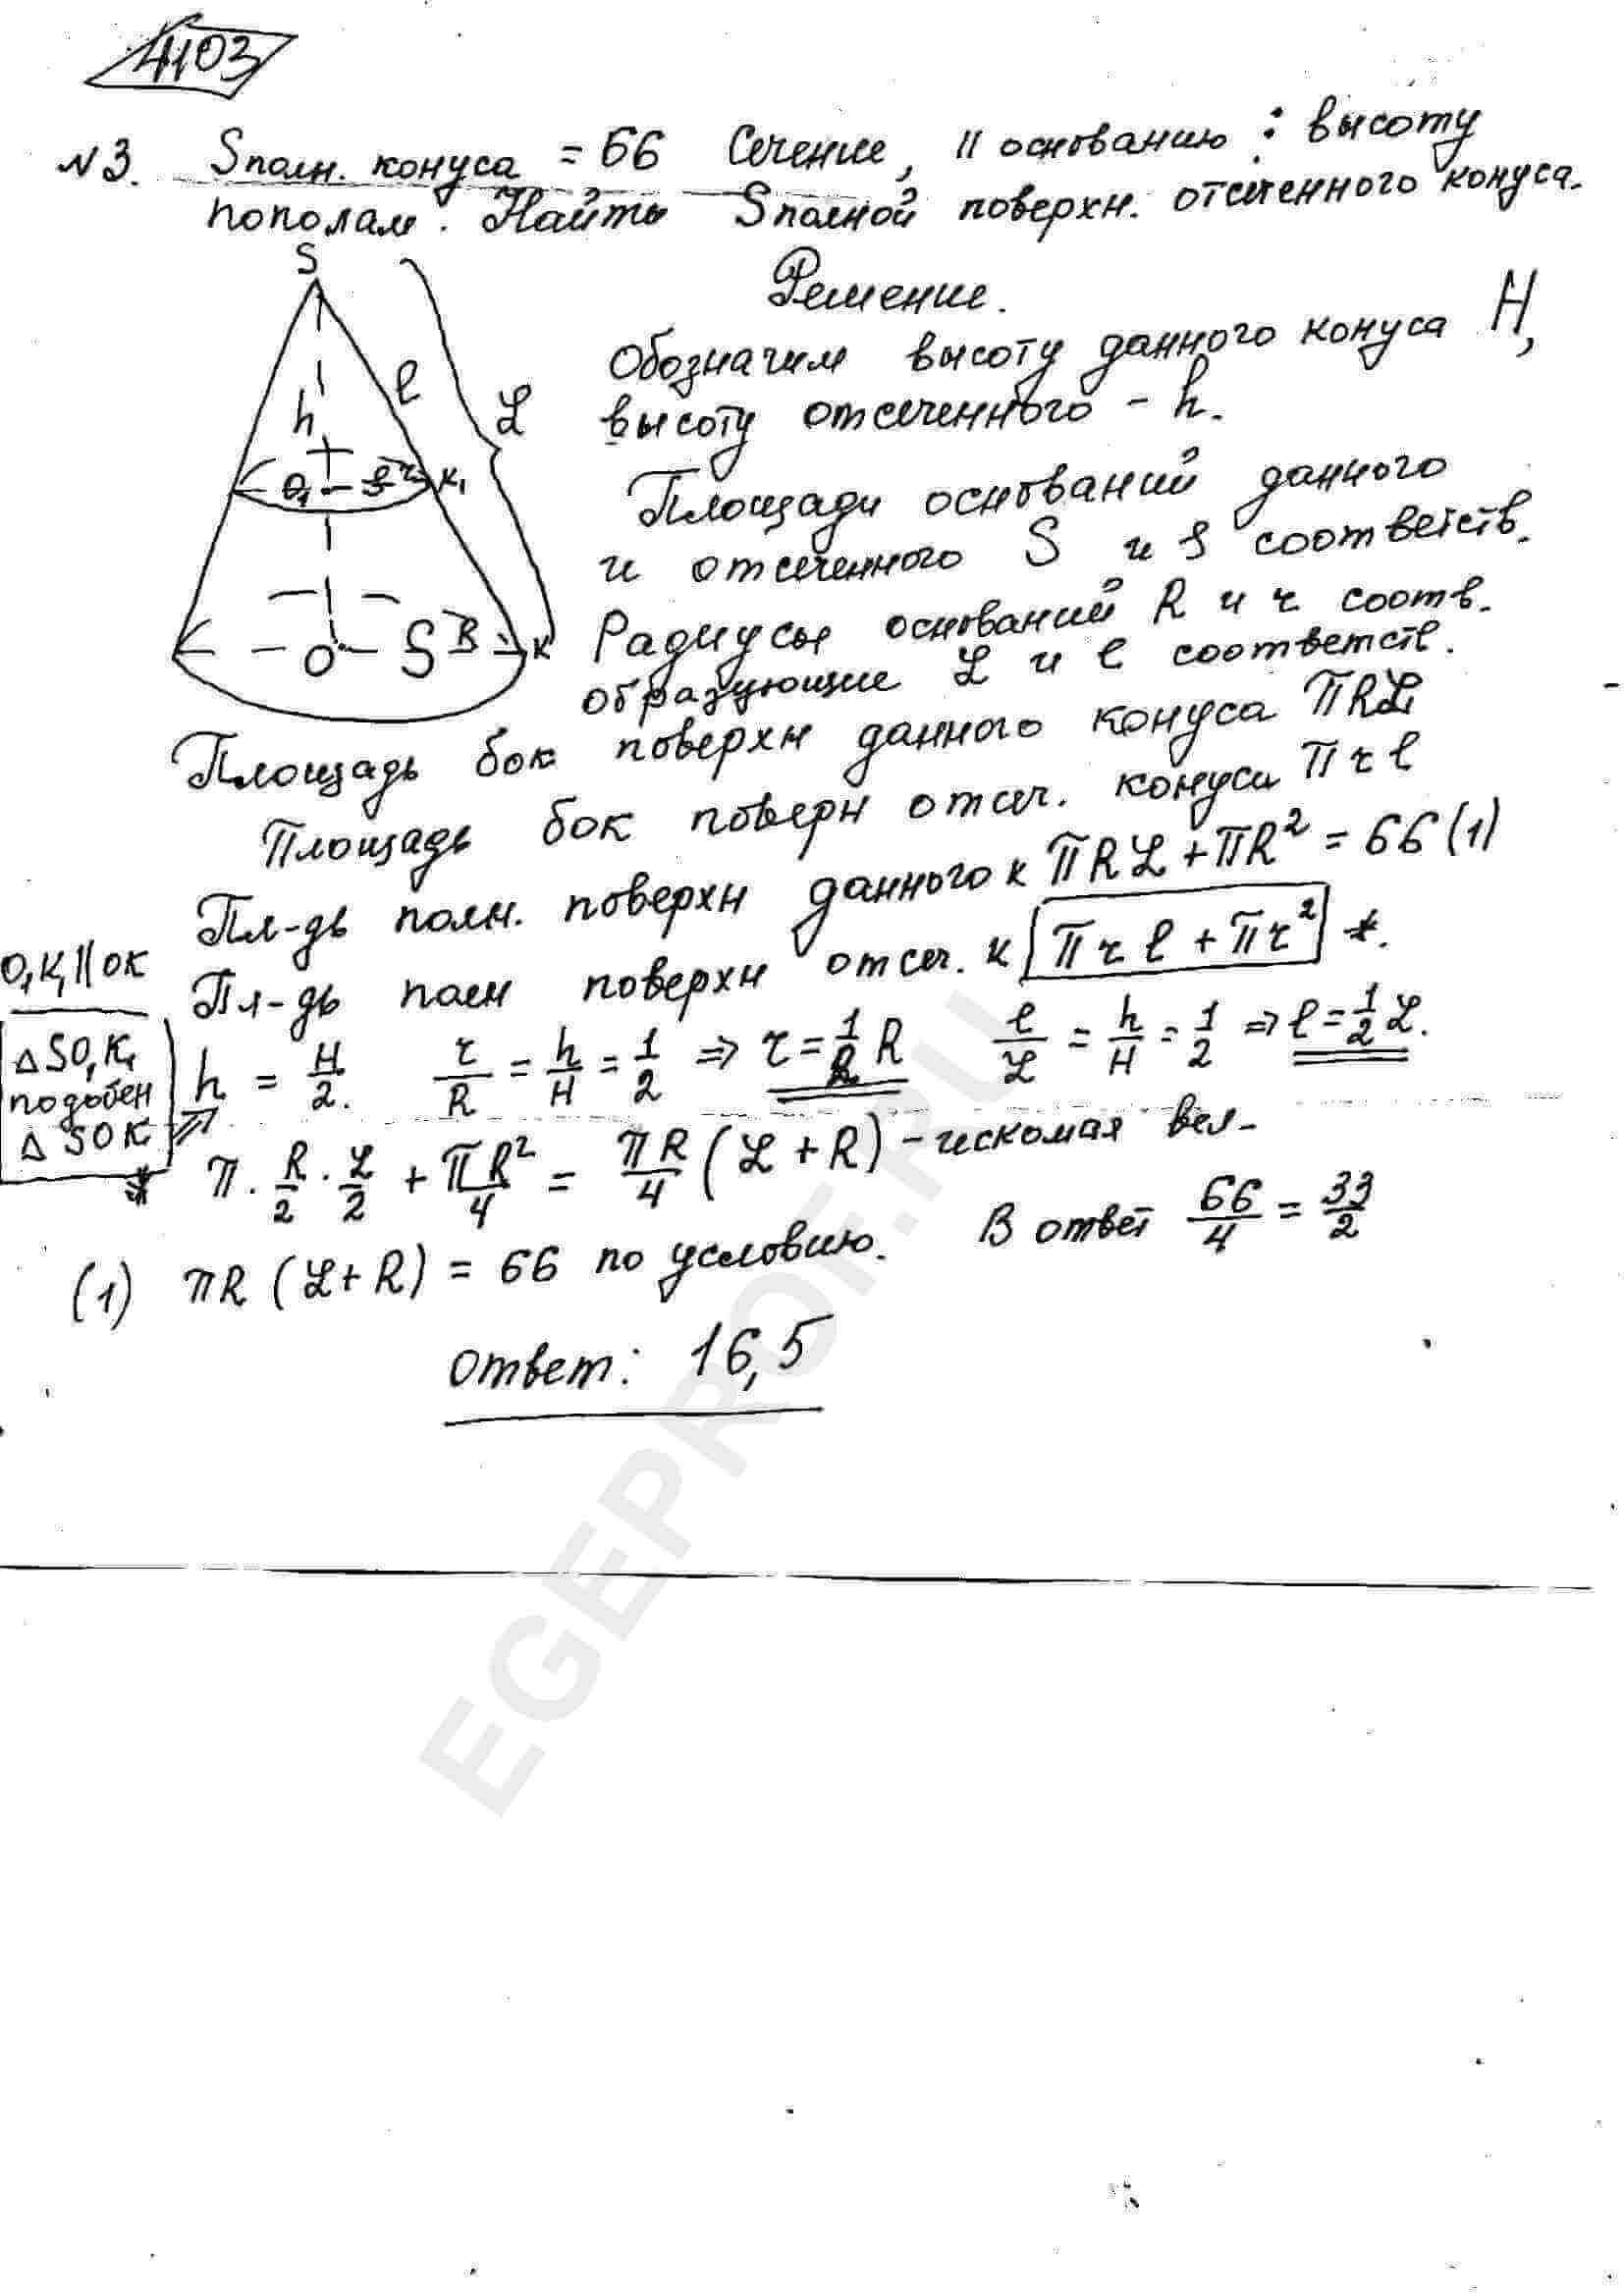 4103
№3. Sполн. конуса = 66 Сечение, || основанию : высоту
пополам. Найти Sполной поверхн. отсеченного конуса.
Решение.
Обозначим высоту данного конуса H,
высоту отсеченного – h.
Площади оснований данного
и отсеченного S и s соответств.
Радиусы оснований R и r соотв.
образующие L и l соответств.
S
l
L
h
O₁ s r K₁
O S R K
Площадь бок поверхн данного конуса πRL
Площадь бок поверн отсеч. конуса πrl
Пл-дь полн. поверхн данного к πRL + πR² = 66 (1)
Пл-дь полн поверхн отсеч. к πrl + πr² *.
O₁K₁ || OK
ΔSO₁K₁
подобен
ΔSOK ⇒
h = H/2. r/R = h/H = 1/2 ⇒ r = 1/2 R l/L = h/H = 1/2 ⇒ l = 1/2 L.
* π · R/2 · L/2 + πR²/4 = πR/4 (L + R) – искомая вел-
(1) πR (L + R) = 66 по условию. В ответ 66/4 = 33/2
Ответ: 16,5
EGEPROF.RU